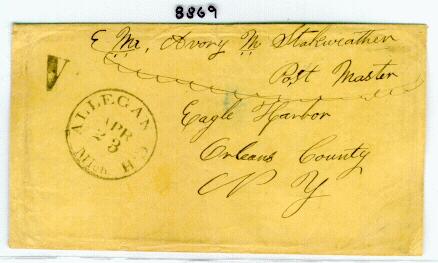 8869
E Mr. Avory M Stakweather
Post Master
V
ALLEGAN
APR
23
Mich
Eagle Harbor
Orleans County
N Y